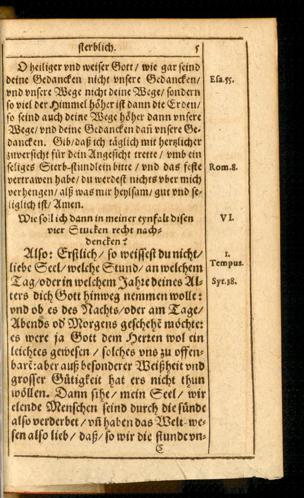 sterblich. 5
O heiliger vnd weiser Gott / wie gar seind
deine Gedancken nicht vnsere Gedancken / Esa.55.
vnd vnsere Wege nicht deine Wege / sondern
so viel der Himmel höher ist dann die Erden /
so seind auch deine Wege höher dann vnsere
Wege / vnd deine Gedancken dañ vnsere Ge-
dancken. Gib / daß ich täglich mit hertzlicher
zuversicht für dein Angesicht trette / vmb ein
seliges Sterb-stündlein bitte / vnd das feste Rom.8.
vertrawen habe / du werdest nichts vber mich
verhengen / alß was mir heylsam / gut vnd se-
liglich ist / Amen.
Wie soll ich dann in meiner eynfalt disen VI.
vier Stucken recht nach-
dencken?
Also: Erstlich / so weissest du nicht / 1.
liebe Seel / welche Stund / an welchem Tempus.
Tag / oder in welchem Jahr deines Al- Syr.38.
ters dich Gott hinweg nemmen wolle:
vnd ob es des Nachts / oder am Tage /
Abends oď Morgens geschehē möchte:
es were ja Gott dem Herren wol ein
leichtes gewesen / solches vns zu offen-
barē: aber auß besonderer Weißheit vnd
grosser Gütigkeit hat ers nicht thun
wöllen. Dann sihe / mein Seel / wir
elende Menschen seind durch die sünde
also verderbet / vñ haben das Welt-we-
sen also lieb / daß / so wir die stunde vn-
C